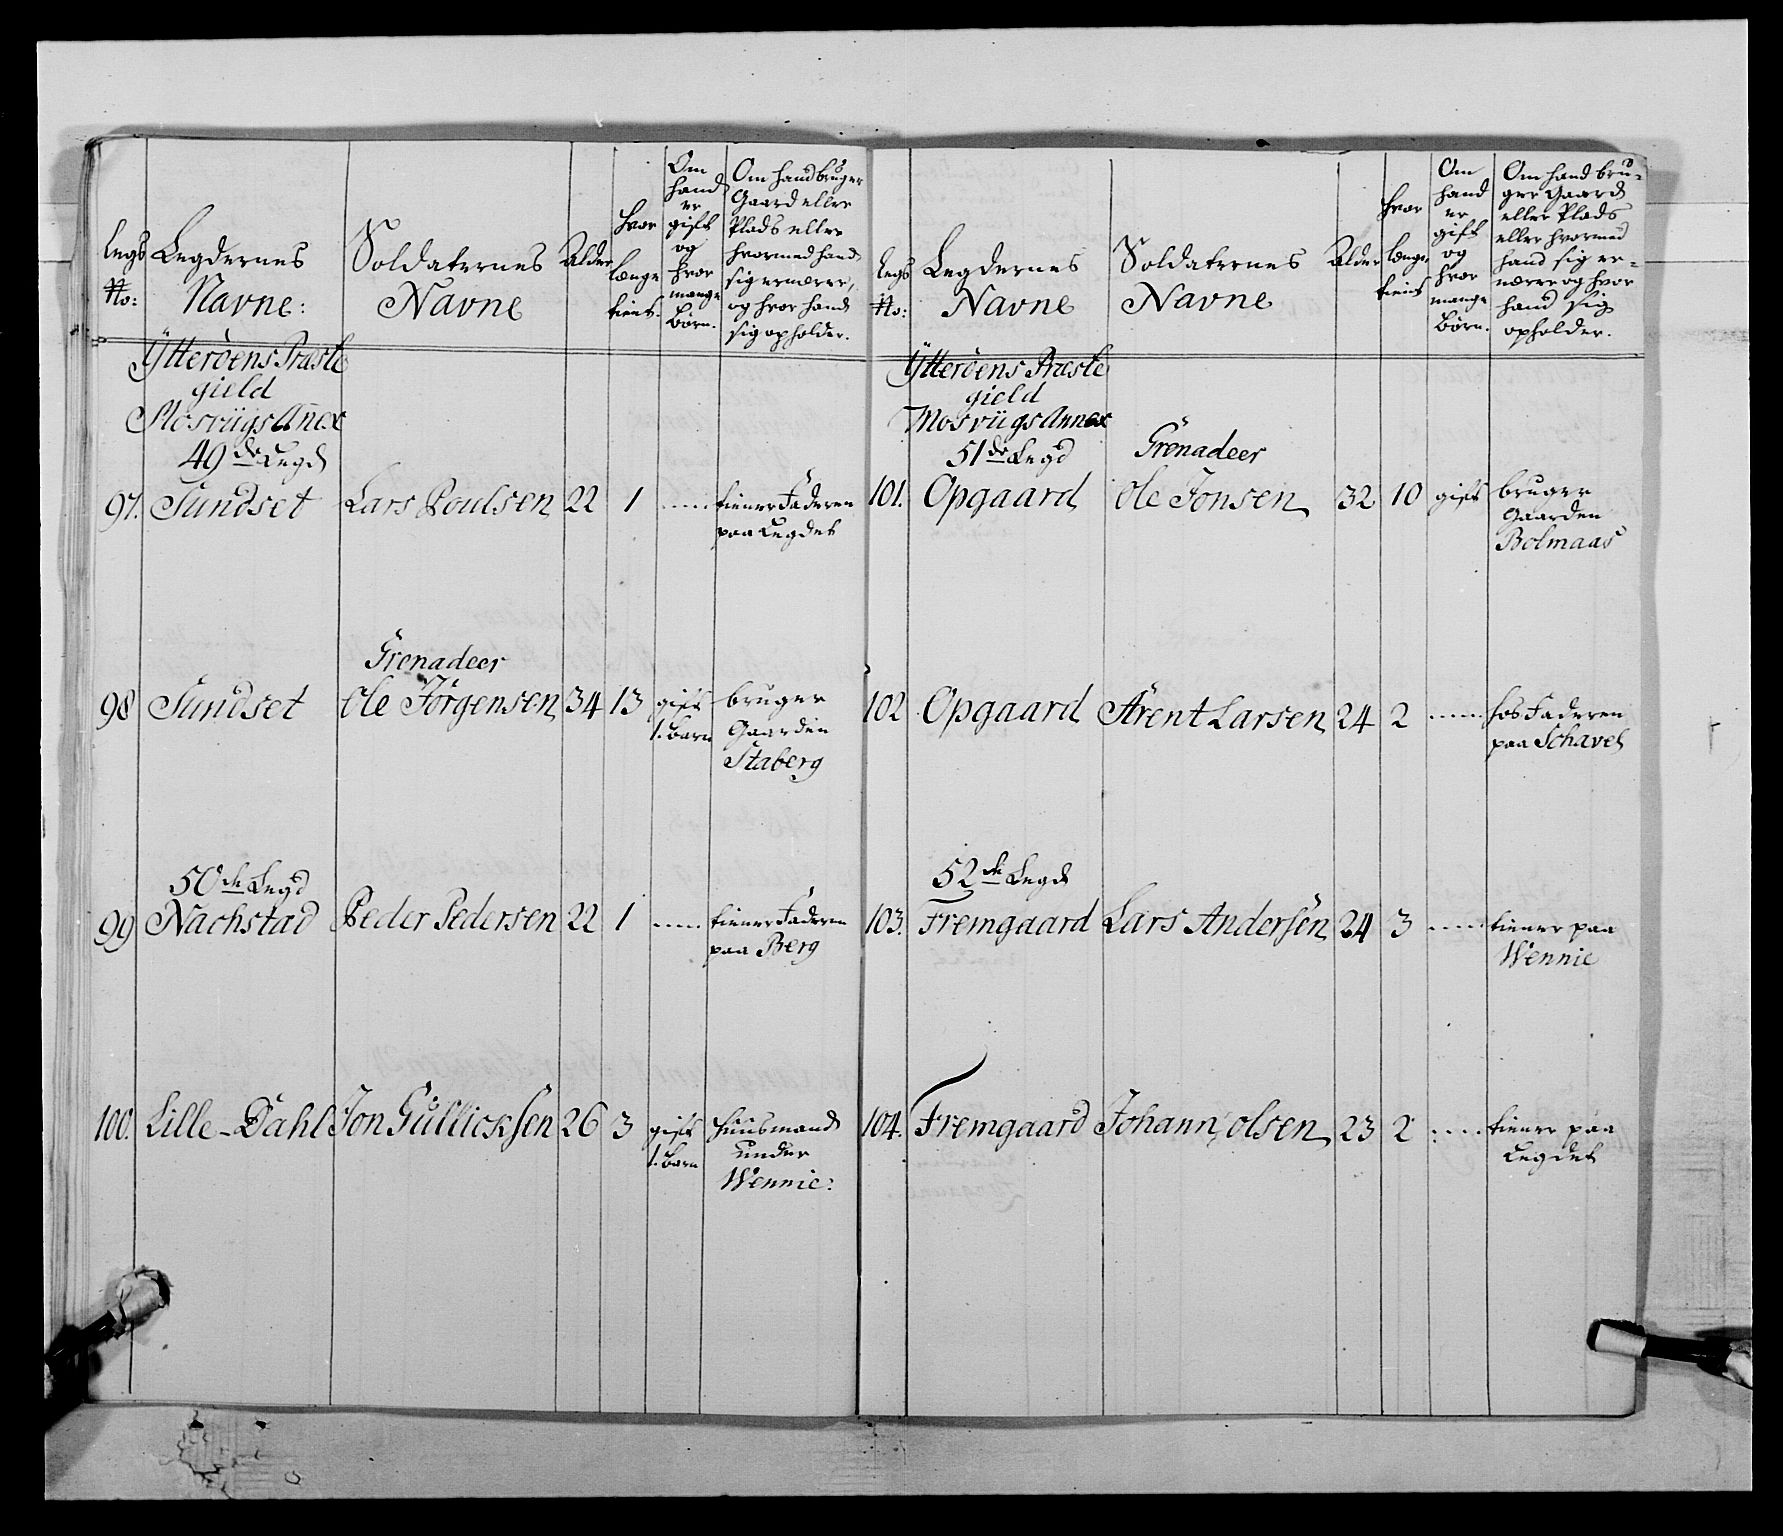 Legs No: Legdernes Navne: Soldaternes Navne Alder hvor længe tient. Om hand er gift og hvor mange Børn. Om hand bruger Gaard eller Plads eller hvormed hand sig ernærer, og hvor hand sig opholder.
Ÿtterøens Præste
gield
Mosviigs Anex
49de Legd
97. Sundset Lars Poulsen 22 1 ...... tiener Faderen
paa Legdet
Grenadeer
98 Sundset Ole Jørgensen 34 13 gift bruger
1. barn Gaarden
Staberg
50de Legd
99 Nachstad Peder Pedersen 22 1 ...... tiener Faderen
paa Berg
100. Lille-Dahl Jon Gullicksen 26 3 gift Huusmand
1. barn under
Wennie:
Legs No: Legdernes Navne Soldaternes Navne Alder hvor længe tient Om hand er gift og hvor mange Børn. Om hand bruger Gaard eller Plads eller hvormed hand sig ernærer og hvor hand sig opholder.
Ÿtterøens Præste
gield
Mosviigs Annex
51de Legd Grenadeer
101. Opgaard Ole Jonsen 32 10 gift bruger
Gaarden
Bolmaas
102 Opgaard Arent Larsen 24 2 ...... hos Faderen
paa Schavel
52de Legd
103. Fremgaard Lars Andersen 24 3 ...... tiener paa
Wennie
104. Fremgaard Johann olsen 23 2 ...... tiener paa
Legdet